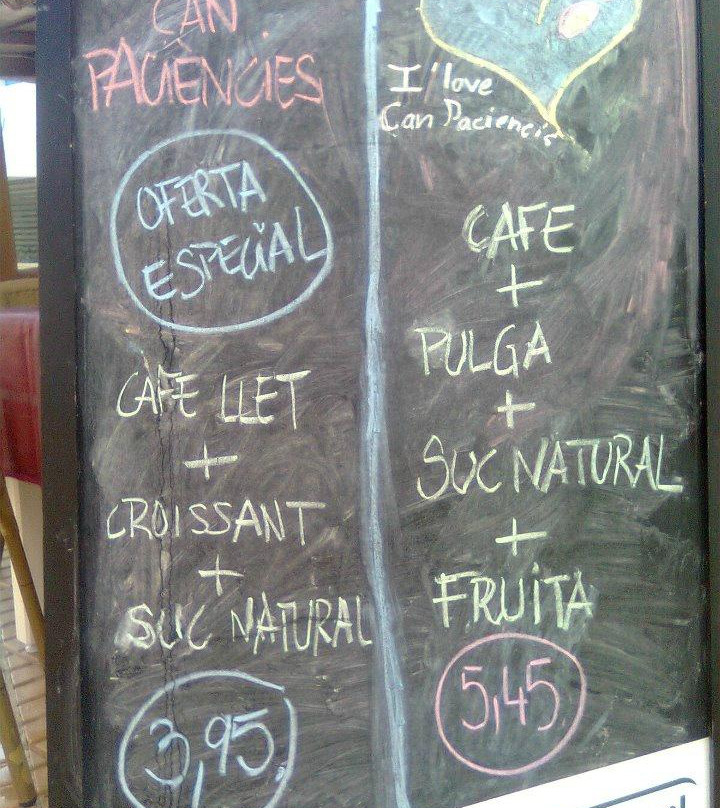 CAN
PACIÈNCIES
OFERTA
ESPECIAL
CAFE LLET
+
CROISSANT
+
SUC NATURAL
3,95
I'love
Can Paciencie
CAFE
+
PULGA
+
SUC NATURAL
+
FRUITA
5,45